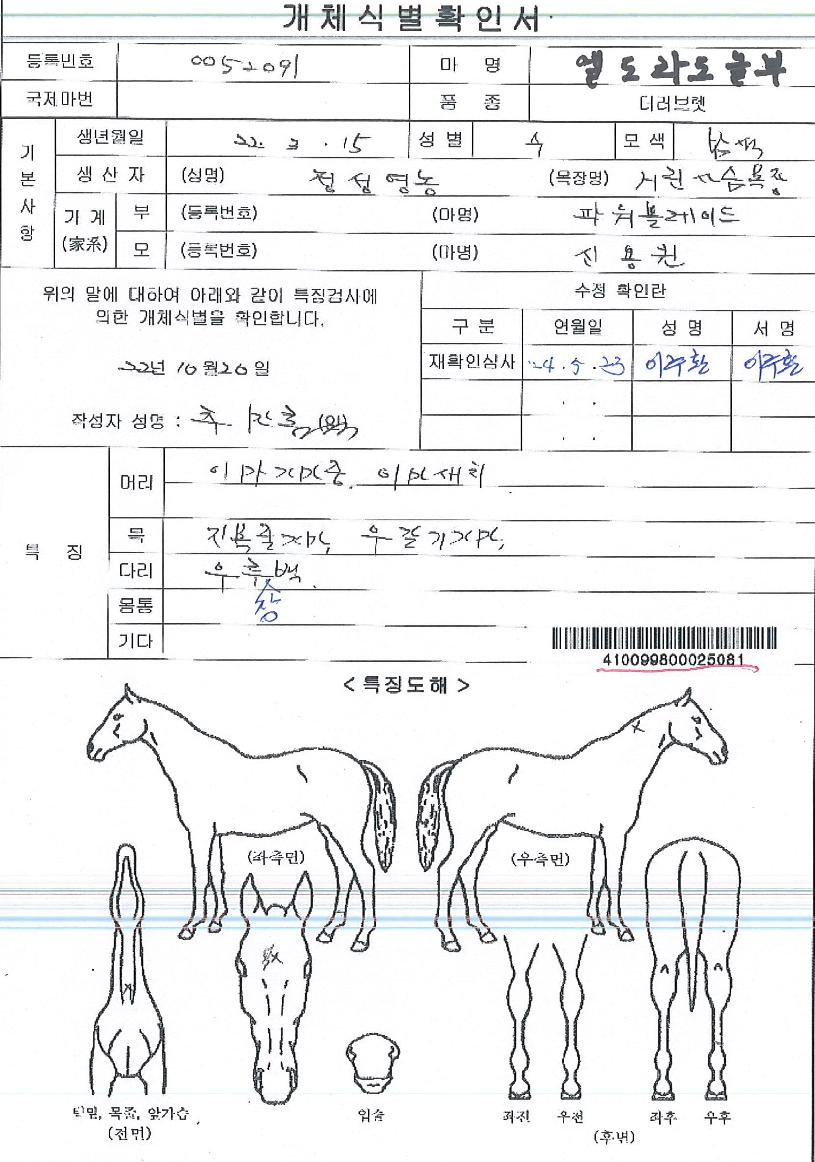 개체식별확인서
등록번호 0052091 마 명 엘도라도놀부
국제마번 품 종 더러브렛
기본사항
생년월일 22. 3. 15 성별 수 모색
생산자 (성명) 정성영농 (목장명)
가계(家系) 부 (등록번호) (마명) 파워블레이드
모 (등록번호) (마명) 신용권
위의 말에 대하여 아래와 같이 특징검사에
의한 개체식별을 확인합니다.
22년 10월 20일
작성자 성명 :
수정 확인란
구분 연월일 성명 서명
재확인심사 24. 5. 23 이주환 이주환
. .
. .
특 징
머리
목
다리 우후백
장
몸통
기타
410099800025081
< 특징도해 >
(좌측면) (우측면)
턱밑, 목줄, 앞가슴
(전면)
입술
좌전 우전 좌후 우후
(후면)